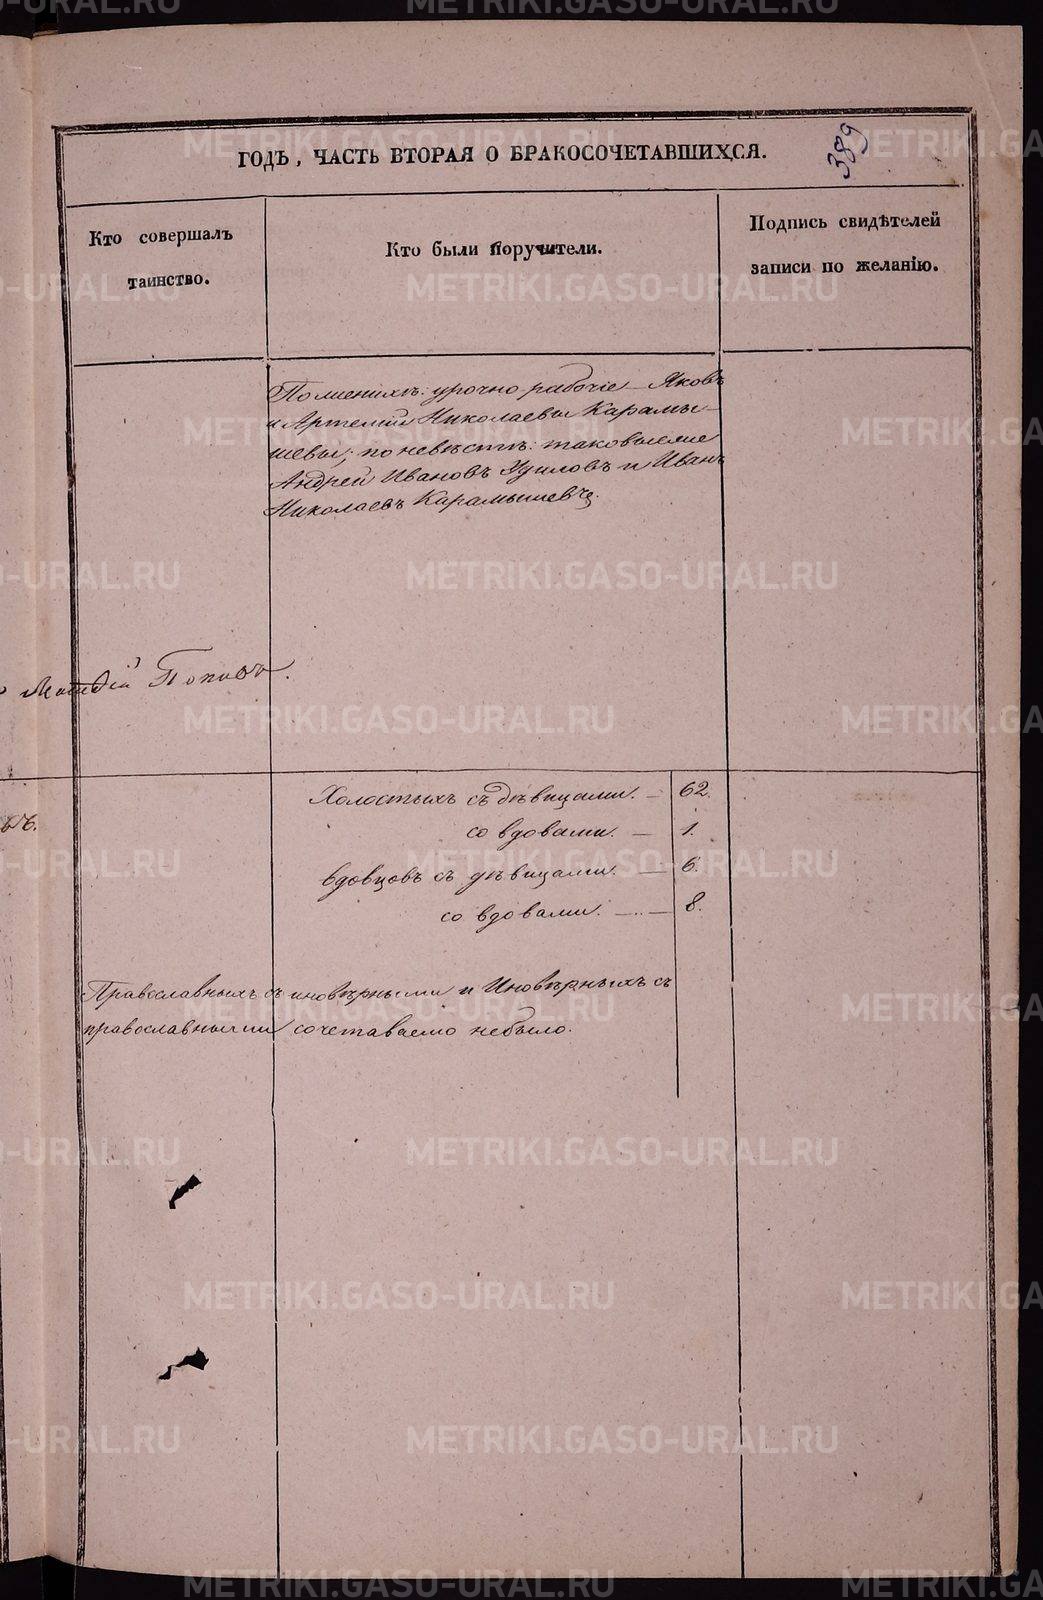 ГОДЪ, ЧАСТЬ ВТОРАЯ О БРАКОСОЧЕТАВШИХСЯ.
389
Кто совершалъ
таинство.
Кто были поручители.
Подпись свидѣтелей
записи по желанію.
По женихѣ: урочно-рабочіе Яковъ
и Артемій Николаевы Карамы-
шевы; по невѣстѣ: таковыеже
Андрей Ивановъ и Иванъ
Николаевъ Карамышевъ.
Матѳій Поповъ.
Холостыхъ съ дѣвицами. — 62.
со вдовами. — 1.
вдовцовъ съ дѣвицами. — 6.
со вдовами. — 8.
Православныхъ съ иновѣрными и Иновѣрныхъ съ
православными сочетаваемо небыло.
METRIKI.GASO-URAL.RU